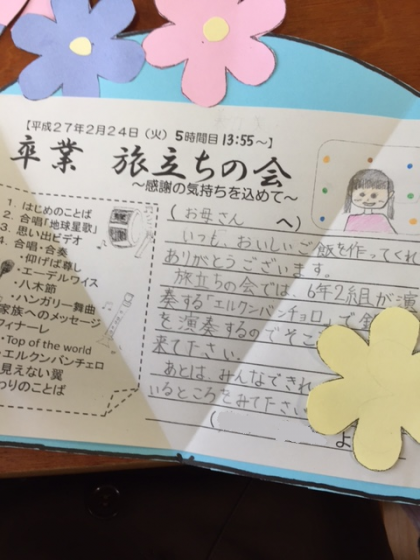 【平成27年2月24日（火）5時間目 13:55～】
卒業 旅立ちの会
～感謝の気持ちを込めて～
1. はじめのことば
2. 合唱「地球星歌」
3. 思い出ビデオ
4. 合唱・合奏
・仰げば尊し
・エーデルワイス
・八木節
・ハンガリー舞曲
家族へのメッセージ
フィナーレ
・Top of the world
・エルクンバンチェロ
見えない翼
わりのことば
(お母さん へ)
いつも、おいしいご飯を作ってくれ
ありがとうございます。
旅立ちの会では、6年2組が演
奏する「エルクンバンチェロ」で
を演奏するのでそこ
来て下さい。
あとは、みんなできれ
いるところをみて下さい
( よ